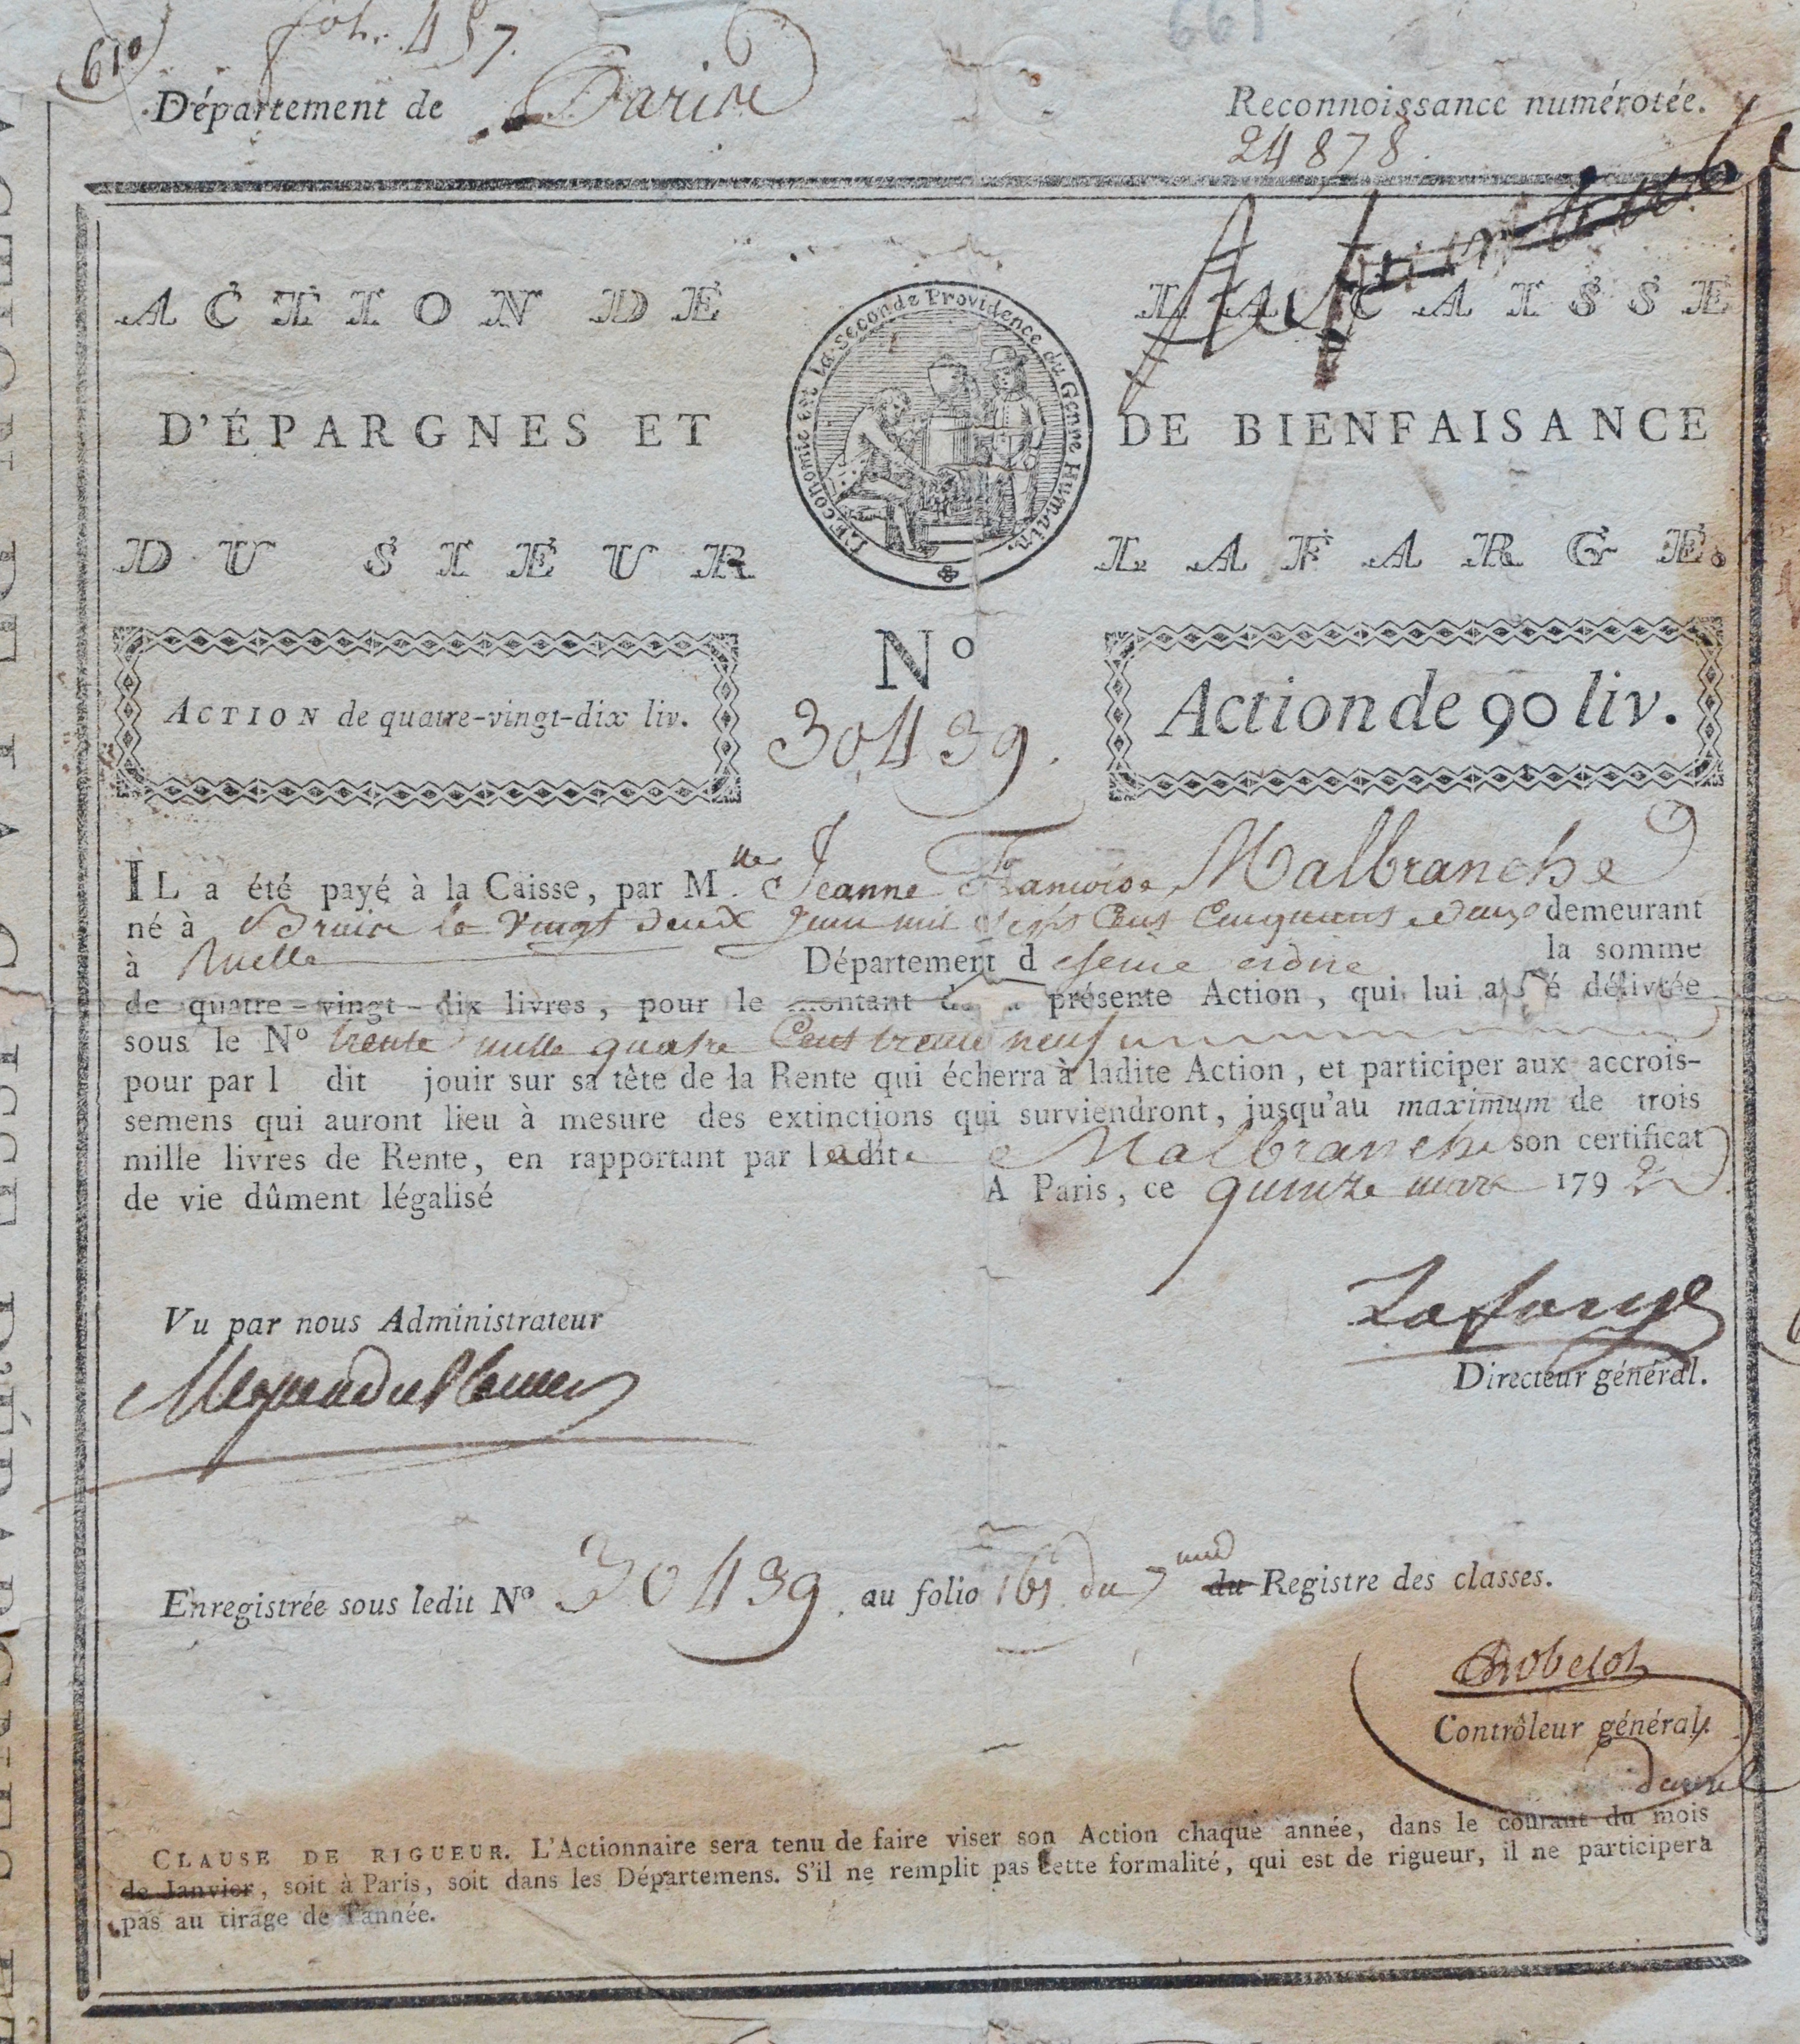 610
fol. 457.
661
Département de Paris
Reconnoissance numérotée.
24878.
ACTION DE LA CAISSE
L'Économie est la seconde Providence du Genre Humain.
D'ÉPARGNES ET DE BIENFAISANCE
DU SIEUR LAFARGE.
ACTION de quatre-vingt-dix liv.
N°
30439.
Action de 90 liv.
IL a été payé à la Caisse, par Mlle Jeanne Francoise Malbranche
né à le vingt deux Juin mil Sept Cent Cinquante deux demeurant
à Ruelle Département de seine et oise la somme
de quatre-vingt-dix livres, pour le montant de présente Action, qui lui a été délivrée
sous le N° trente mille quatre Cent trente neuf
pour par l dit jouir sur sa tête de la Rente qui écherra à ladite Action, et participer aux accrois-
semens qui auront lieu à mesure des extinctions qui surviendront, jusqu'au maximum de trois
mille livres de Rente, en rapportant par ladite Malbranche son certificat
de vie dûment légalisé A Paris, ce quinze mars 1792
Lafarge
Vu par nous Administrateur
Directeur général.
Enregistrée sous ledit N° 30439. au folio 161 du 7 du Registre des classes.
Robelot
Contrôleur général.
CLAUSE DE RIGUEUR. L'Actionnaire sera tenu de faire viser son Action chaque année, dans le courant du mois
de Janvier, soit à Paris, soit dans les Départemens. S'il ne remplit pas cette formalité, qui est de rigueur, il ne participera
pas au tirage de l'année.